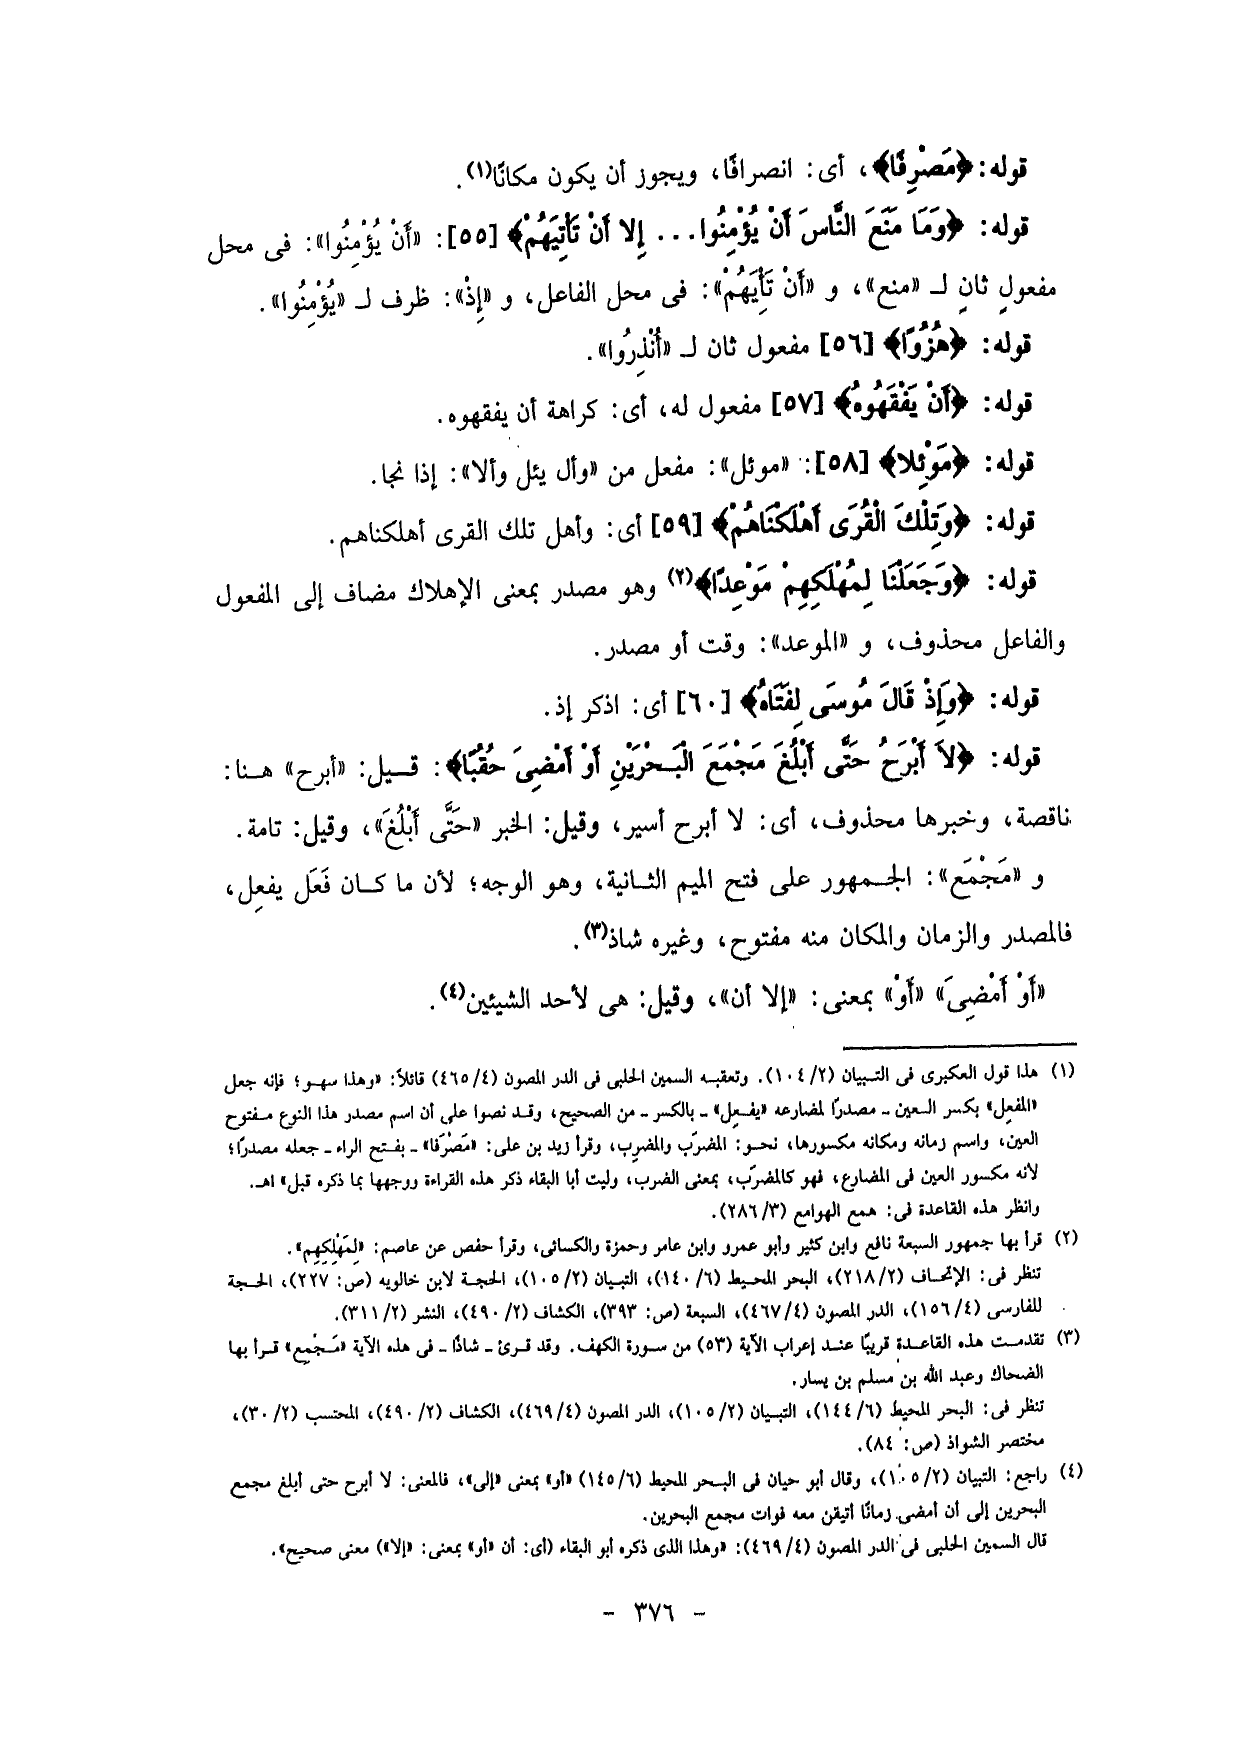 قوله: ﴿مَصْرِفًا﴾، أى: انصرافًا، ويجوز أن يكون مكانًا(١).
قوله: ﴿وَمَا مَنَعَ النَّاسَ أَنْ يُؤْمِنُوا... إِلا أَنْ تَأْتِيَهُمْ﴾ [٥٥]: «أَنْ يُؤْمِنُوا»: فى محل
مفعولٍ ثانٍ لـ «منع»، و «أَنْ تَأْيَهُمْ»: فى محل الفاعل، و «إِذْ»: ظرف لـ «يُؤْمِنُوا».
قوله: ﴿هُزُوًا﴾ [٥٦] مفعول ثان لـ «أُنْذِرُوا».
قوله: ﴿أَنْ يَفْقَهُوهُ﴾ [٥٧] مفعول له، أى: كراهة أن يفقهوه.
قوله: ﴿مَوْئِلا﴾ [٥٨]: «موئل»: مفعل من «وأل يئل وألا»: إذا نجا.
قوله: ﴿وَتِلْكَ الْقُرَى أَهْلَكْنَاهُمْ﴾ [٥٩] أى: وأهل تلك القرى أهلكناهم.
قوله: ﴿وَجَعَلْنَا لِمُهْلَكِهِمْ مَوْعِدًا﴾(٢) وهو مصدر بمعنى الإهلاك مضاف إلى المفعول
والفاعل محذوف، و «الموعد»: وقت أو مصدر.
قوله: ﴿وَإِذْ قَالَ مُوسَى لِفَتَاهُ﴾ [٦٠] أى: اذكر إذ.
قوله: ﴿لاَ أَبْرَحُ حَتَّى أَبْلُغَ مَجْمَعَ الْبَحْرَيْنِ أَوْ أَمْضِىَ حُقُبًا﴾: قيل: «أبرح» هنا:
ناقصة، وخبرها محذوف، أى: لا أبرح أسير، وقيل: الخبر «حَتَّى أَبْلُغَ»، وقيل: تامة.
و «مَجْمَع»: الجمهور على فتح الميم الثانية، وهو الوجه؛ لأن ما كان فَعَل يفعِل،
فالمصدر والزمان والمكان منه مفتوح، وغيره شاذ(٣).
«أَوْ أَمْضِىَ» «أَوْ» بمعنى: «إلا أن»، وقيل: هى لأحد الشيئين(٤).
(١) هذا قول العكبرى فى التبيان (١٠٤/٢). وتعقبه السمين الحلبى فى الدر المصون (٤٦٥/٤) قائلاً: «وهذا سهو؛ فإنه جعل
«المفعِل» بكسر العين ـ مصدرًا لمضارعه «يفعِل» ـ بالكسر ـ من الصحيح، وقد نصوا على أن اسم مصدر هذا النوع مفتوح
العين، واسم زمانه ومكانه مكسورها، نحو: المضرَب والمضرِب، وقرأ زيد بن على: «مَصْرَفا» ـ بفتح الراء ـ جعله مصدرًا؛
لأنه مكسور العين فى المضارع، فهو كالمضرَب، بمعنى الضرب، وليت أبا البقاء ذكر هذه القراءة ووجهها بما ذكره قبل» اهـ.
وانظر هذه القاعدة فى: همع الهوامع (٢٨٦/٣).
(٢) قرأ بها جمهور السبعة نافع وابن كثير وأبو عمرو وابن عامر وحمزة والكسائى، وقرأ حفص عن عاصم: «لِمَهْلِكِهِم».
تنظر فى: الإتحاف (٢١٨/٢)، البحر المحيط (١٤٠/٦)، التبيان (١٠٥/٢)، الحجة لابن خالويه (ص: ٢٢٧)، الحجة
للفارسى (١٥٦/٤)، الدر المصون (٤٦٧/٤)، السبعة (ص: ٣٩٣)، الكشاف (٤٩٠/٢)، النشر (٣١١/٢).
(٣) تقدمت هذه القاعدة قريبًا عند إعراب الآية (٥٣) من سورة الكهف. وقد قرئ ـ شاذًا ـ فى هذه الآية «مَجْمِع» قرأ بها
الضحاك وعبد الله بن مسلم بن يسار.
تنظر فى: البحر المحيط (١٤٤/٦)، التبيان (١٠٥/٢)، الدر المصون (٤٦٩/٤)، الكشاف (٤٩٠/٢)، المحتسب (٣٠/٢)،
مختصر الشواذ (ص: ٨٤).
(٤) راجع: التبيان (١٠٥/٢)، وقال أبو حيان فى البحر المحيط (١٤٥/٦) «أو» بمعنى «إلى»، فالمعنى: لا أبرح حتى أبلغ مجمع
البحرين إلى أن أمضى زمانًا أتيقن معه فوات مجمع البحرين.
قال السمين الحلبى فى الدر المصون (٤٦٩/٤): «وهذا الذى ذكره أبو البقاء (أى: أن «أو» بمعنى: «إلا») معنى صحيح».
- ٣٧٦ -